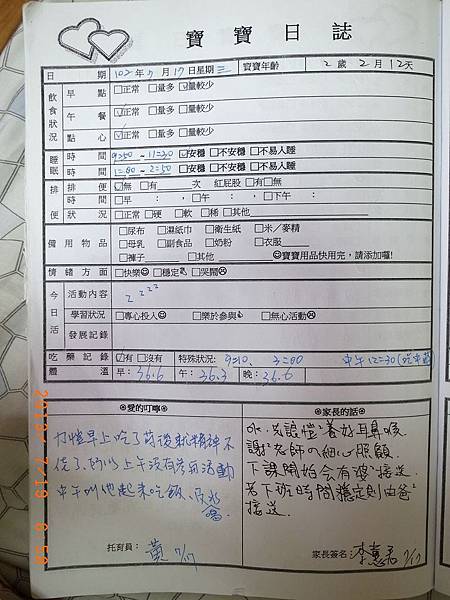 寶寶日誌
日期 102年7月17日星期三 寶寶年齡 2歲2月12天
飲食狀況 早點 □正常 □量多 ☑量較少
午餐 ☑正常 □量多 □量較少
點心 ☑正常 □量多 □量較少
睡眠 時間 9:50 ~ 11:30 ☑安穩 □不安穩 □不易入睡
時間 ~ 2:50 ☑安穩 □不安穩 □不易入睡
排便 排便 ☑無 □有 次 紅屁股 □有□無
時間 □早 : , □午 : , □下午 :
狀況 □正常 □硬 □軟 □稀 □其他
備用物品 □尿布 □濕紙巾 □衛生紙 □米/麥精
□母乳 □副食品 □奶粉 □衣服
□褲子 □其他 ☺寶寶用品快用完,請添加喔!
情緒方面 □快樂☺ □穩定 □哭鬧☹
今日活 活動內容 z z z z
學習狀況 □專心投入☺ □樂於參與 □無心活動☹
發展記錄
吃藥記錄 ☑有 □沒有 特殊狀況: 9:10、 3:00 中午12:30(吃中藥)
體溫 早: 36.6 午: 36.3 晚: 36.6
愛的叮嚀
早上吃了藥後就精神不
佳了,所以上午沒有參與活動
中午叫他起來吃飯、
托育員: 黃 7/17
家長的話
OK. 先讓愷愷養好耳鼻喉
謝謝老師の細心照顧
下課開始會有婆婆接送
若下班時間穩定則由爸爸
接送
家長簽名: 李惠君 7/17
2013/7/19 6:59